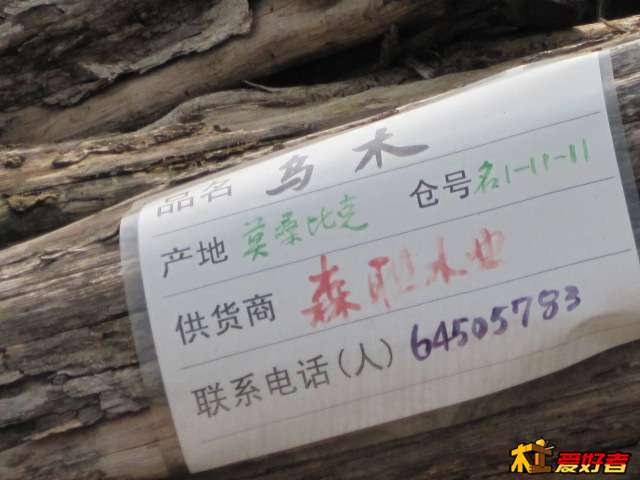 品名 乌木
产地 莫桑比克 仓号 名1-11-11
供货商 森胆木业
联系电话(人) 64505783
木工爱好者